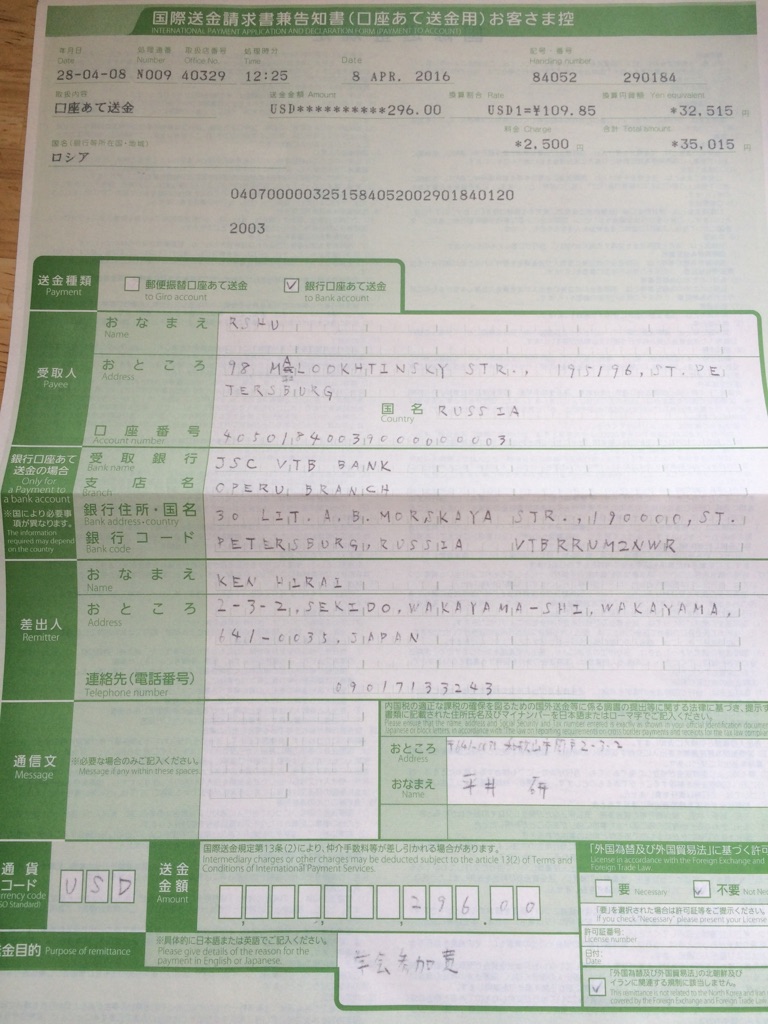 国際送金請求書兼告知書(口座あて送金用)お客さま控
INTERNATIONAL PAYMENT APPLICATION AND DECLARATION FORM (PAYMENT TO ACCOUNT)
年月日 処理通番 取扱店番号 処理時分 記号・番号
Date Number Office No. Time Date Handling number
28-04-08 N009 40329 12:25 8 APR. 2016 84052 290184
取扱内容 送金金額 Amount 換算割合 Rate 換算円貨額 Yen equivalent
口座あて送金 USD**********296.00 USD1=¥109.85 *32,515 円
料金 Charge 合計 Total amount
*2,500 円 *35,015 円
国名(銀行等所在国・地域)
ロシア
0407000003251584052002901840120
2003
送金種類 Payment
郵便振替口座あて送金 to Giro account
銀行口座あて送金 to Bank account
受取人 Payee
おなまえ Name RSHU
おところ Address 98 MALOOKHTINSKY STR., 195196, ST. PE
TERSBURG
国名 Country RUSSIA
口座番号 Account number 40501840039000000003
銀行口座あて送金の場合
Only for a Payment to a bank account
※国により必要事項が異なります。
The information required may depend on the country
受取銀行 Bank name JSC VTB BANK
支店名 Branch OPERU BRANCH
銀行住所・国名 Bank address・country 30 LIT. A, B. MORSKAYA STR., 190000, ST.
銀行コード Bank code PETERSBURG, RUSSIA VTBRRUM2NWR
差出人 Remitter
おなまえ Name KEN HIRAI
おところ Address 2-3-2, SEKIDO, WAKAYAMA-SHI, WAKAYAMA,
641-0035, JAPAN
連絡先(電話番号) Telephone number 09017133243
通信文 Message
※必要な場合のみご記入ください。
Message if any within these spaces
内国税の適正な課税の確保を図るための国外送金等に係る調書の提出等に関する法律に基づき、提示す
書類に記載された住所氏名及びマイナンバーを日本語またはローマ字でご記入ください。
おところ Address 2-3-2
おなまえ Name 平井 研
通貨コード
USD
送金金額 Amount
国際送金規定第13条(2)により、仲介手数料等が差し引かれる場合があります。
Intermediary charges or other charges may be deducted subject to the article 13(2) of Terms and
Conditions of International Payment Services.
296.00
「外国為替及び外国貿易法」に基づく許可
License in accordance with the Foreign Exchange and
Foreign Trade Law.
要 Necessary 不要
「要」を選択された場合は許可証等をご提示ください。
If you check "Necessary" please present your License
許可証番号: License number
日付: Date
金目的 Purpose of remittance
※具体的に日本語または英語でご記入ください。
Please give details of the reason for the
payment in English or Japanese.
学会参加費
「外国為替及び外国貿易法」の北朝鮮及び
イランに関連する規制に該当しません。